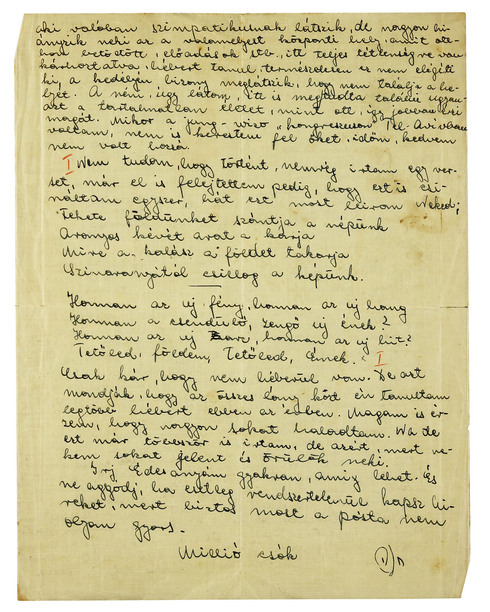 aki valóban szimpatikusnak látszik, de nagyon hi-
ányzik neki az a valamelyest központi hely, amit ott-
hon betöltött, előadások stb., itt teljes tétlenségre van
kárhoztatva. Hébert tanul, természetesen ez nem elégíti
ki, a kedélyén bizony meglátszik, hogy nem találja a he-
lyét. A néni, úgy látom, itt is megtudta találni ugyan-
azt a tartalmatlan életet, mint ott, így jobban érzi
magát. Mikor a jung-wizo "kongresszuson" Tel-Avivban
voltam, nem is kerestem fel őket. időm, kedvem
nem volt hozzá.
I Nem tudom, hogy történt, nemrég írtam egy ver-
set, már el is felejtettem pedig, hogy ezt is csi-
náltam egyszer, hát ezt most leírom Neked;
Fekete földünket szántja a népünk
Aranyos kévét arat a karja
Mire a kalász a földet takarja
Színaranytól csillog a képünk.
Honnan az új fény, honnan az új hang
Honnan a csendülő, zengő új ének?
Honnan az új harc, honnan az új hit?
Tetőled, földem, Tetőled, Émek. I
Csak kár, hogy nem héberül van. De azt
mondják, hogy az összes lány közt én tanultam
legtöbb hébert ebben az évben. Magam is ér-
zem, hogy nagyon sokat haladtam.
ezt már többször is írtam, de azért, mert ne-
kem sokat jelent és örülök neki.
Írj Édesanyám gyakran, amíg lehet. És
ne aggódj, ha esetleg rendszertelenül kapsz hí-
reket, mert biztos most a pósta nem
olyan gyors.
Millió csók